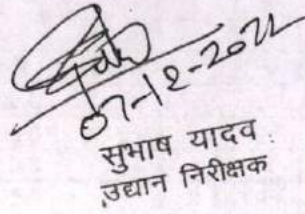 07-12-2021
सुभाष यादव
उद्यान निरीक्षक